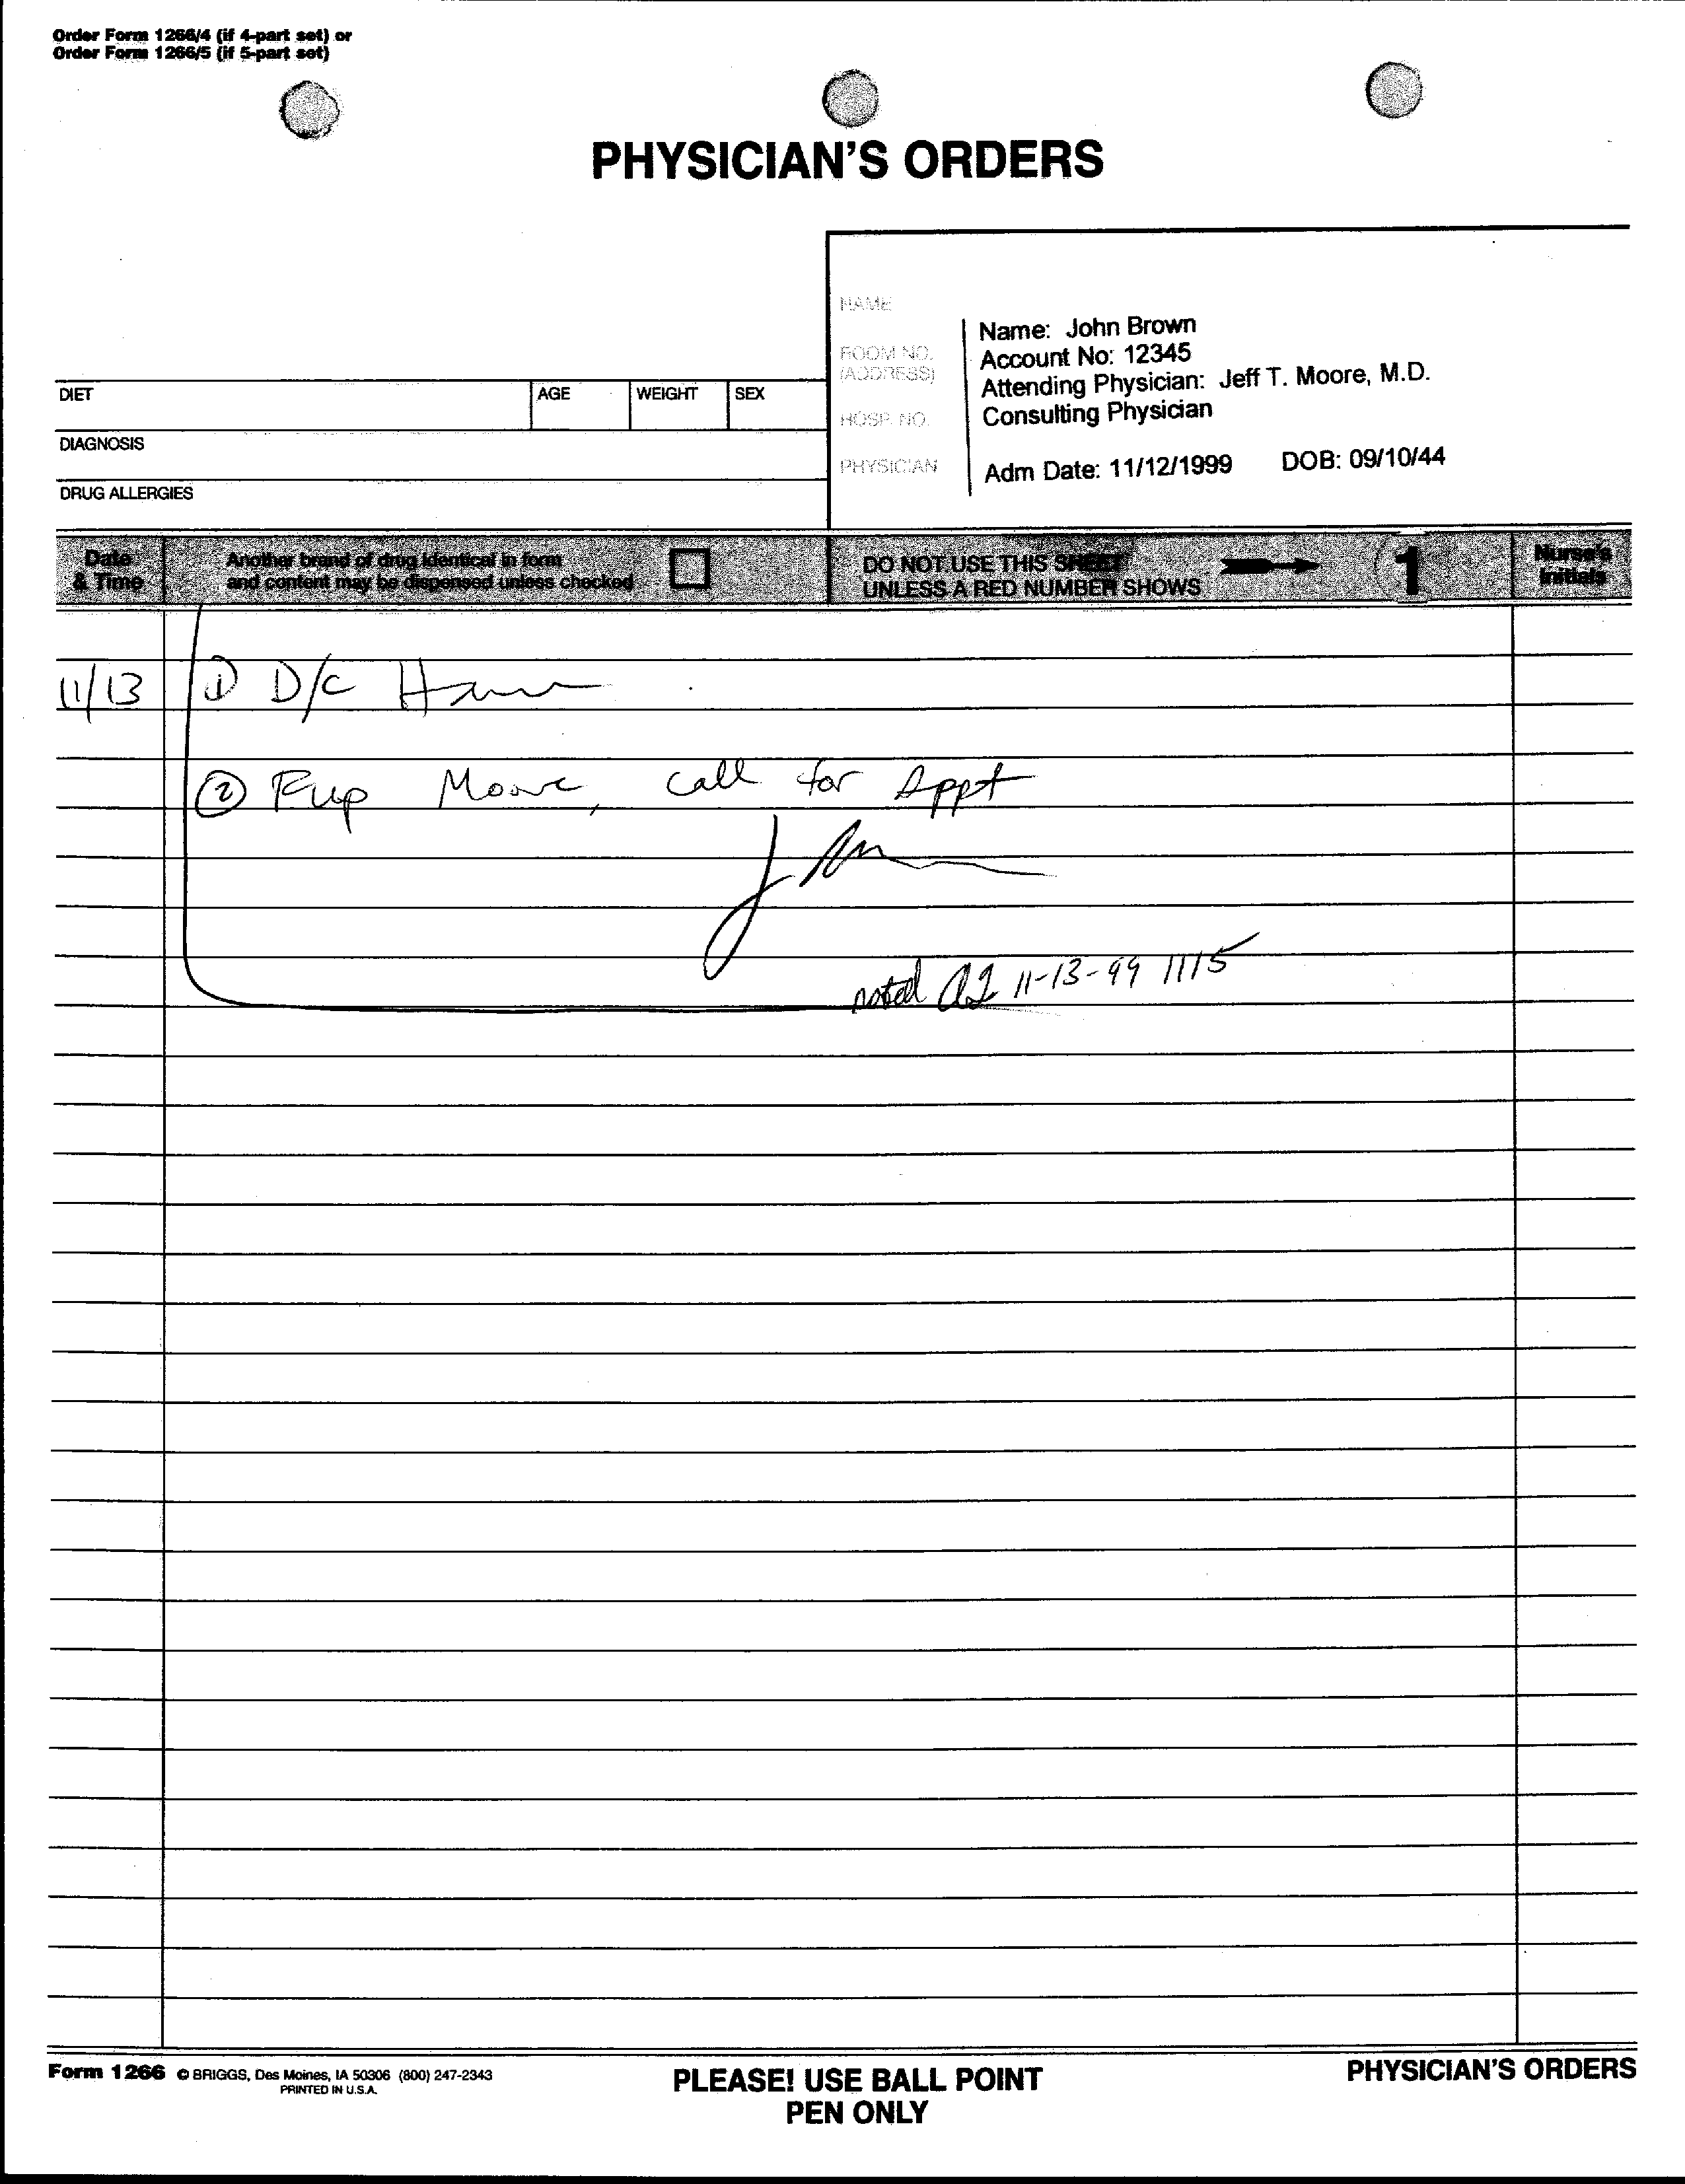 Order Form 1266/4 (if 4-part set) or
Order Form 1266/5 (if 5-part set)
PHYSICIAN'S ORDERS
NAME
ROOM NO.
(ADDRESS)
HOSP. NO.
PHYSICIAN
Name: John Brown
Account No: 12345
Attending Physician: Jeff T. Moore, M.D.
Consulting Physician
Adm Date: 11/12/1999 DOB: 09/10/44
DIET AGE WEIGHT SEX
DIAGNOSIS
DRUG ALLERGIES
Date & Time
Another brand of drug identical in form
and content may be dispensed unless checked
DO NOT USE THIS SHEET
UNLESS A RED NUMBER SHOWS
1
Nurse's
Initials
11/13 ① D/C
② Moore, call for Appt
noted 11-13-99 1115
Form 1266 © BRIGGS, Des Moines, IA 50306 (800) 247-2343
PRINTED IN U.S.A.
PLEASE! USE BALL POINT
PEN ONLY
PHYSICIAN'S ORDERS